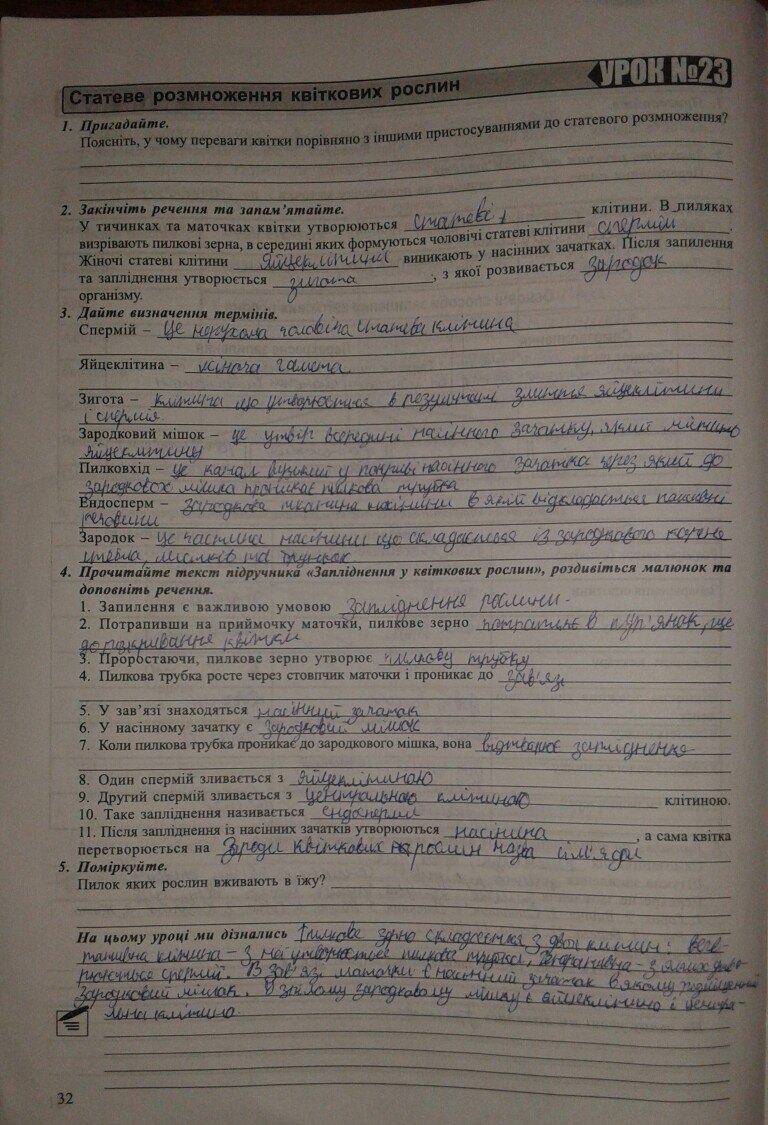 УРОК №23
Статеве розмноження квіткових рослин
1. Пригадайте.
Поясніть, у чому переваги квітки порівняно з іншими пристосуваннями до статевого розмноження?
2. Закінчіть речення та запам'ятайте.
У тичинках та маточках квітки утворюються статеві клітини. В пиляках
визрівають пилкові зерна, в середині яких формуються чоловічі статеві клітини спермії.
Жіночі статеві клітини яйцеклітина виникають у насінних зачатках. Після запилення
та запліднення утворюється зигота, з якої розвивається зародок
організму.
3. Дайте визначення термінів.
Спермій – це нерухома чоловіча статева клітина
Яйцеклітина – жіноча гамета
Зигота – клітина що утворюється в результаті злиття яйцеклітини
і спермія.
Зародковий мішок – це утвір всередині насінного зачатку, який містить
яйцеклітину
Пилковхід – це канал вузький у покриві насінного зачатка через який до
зародковох мішка проникає пилкова трубка
Ендосперм – зародкова тканина насінини в якій відкладається поживні
речовини
Зародок – це частина насінини що складається із зародкового кореня
стебла, листків та бруньок
4. Прочитайте текст підручника «Запліднення у квіткових рослин», роздивіться малюнок та
доповніть речення.
1. Запилення є важливою умовою запліднення рослини.
2. Потрапивши на приймочку маточки, пилкове зерно потрапляє в пур'янок, ще
до розкривання квітки
3. Проростаючи, пилкове зерно утворює пилкову трубку
4. Пилкова трубка росте через стовпчик маточки і проникає до зав'язі
5. У зав'язі знаходяться насінний зачаток
6. У насінному зачатку є зародковий мішок
7. Коли пилкова трубка проникає до зародкового мішка, вона запліднення
8. Один спермій зливається з яйцеклітиною
9. Другий спермій зливається з центральною клітиною клітиною.
10. Таке запліднення називається ендосперм
11. Після запліднення із насінних зачатків утворюються насінина, а сама квітка
перетворюється на Зароди квіткових рослин сім'ядолі
5. Поміркуйте.
Пилок яких рослин вживають в їжу?
На цьому уроці ми дізнались Пилкове зерно складається з двох клітин: веге-
тативна клітина – з неї утворюється пилкова трубка, Генеративна – з яких утво-
рюються спермії. В зав'язі маточки є насінний зачаток в якому
зародковий мішок. В зрілому зародковому мішку є яйцеклітина і центра-
льна клітина.
32